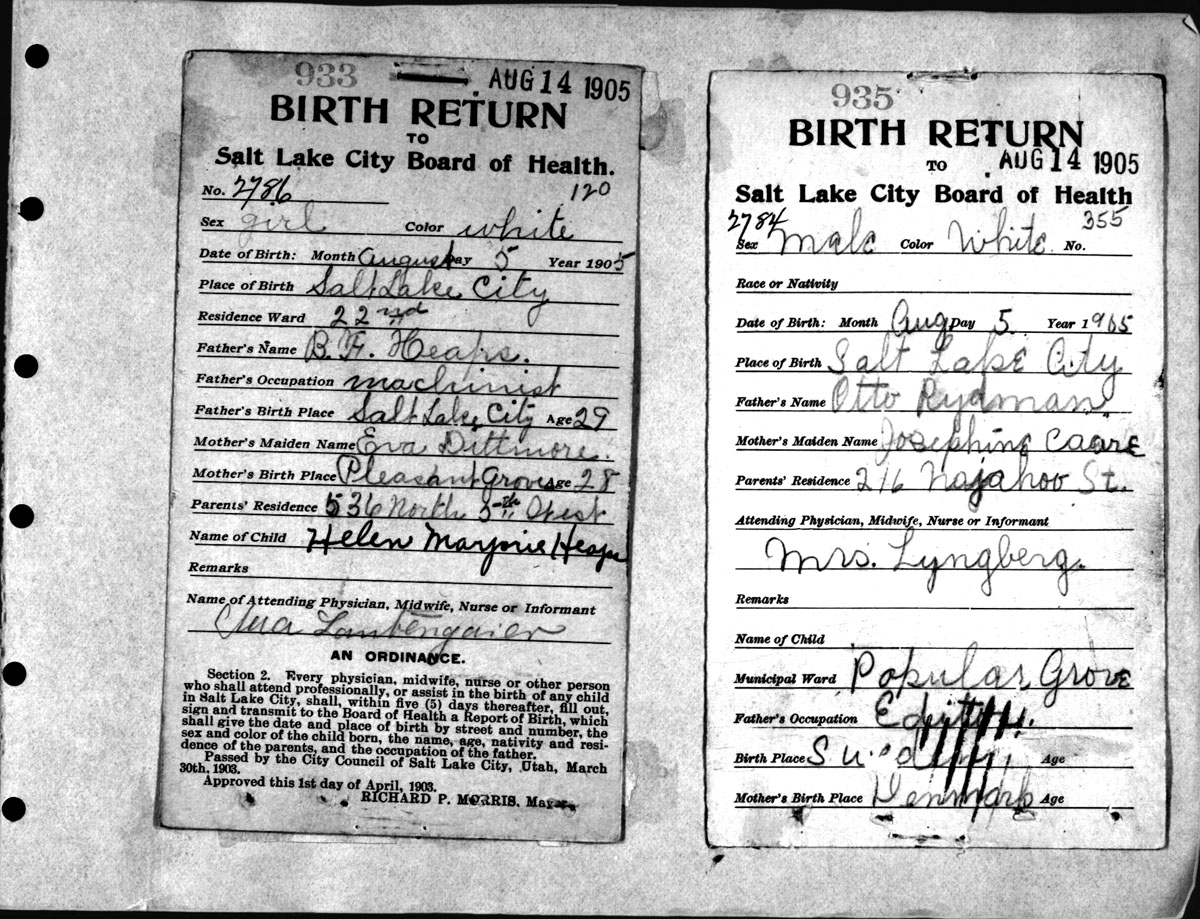 933 AUG 14 1905
BIRTH RETURN
TO
Salt Lake City Board of Health.
No. 2786 120
Sex girl Color white
Date of Birth: Month August Day 5 Year 1905
Place of Birth Salt Lake City
Residence Ward 22nd
Father's Name B. F. Heaps.
Father's Occupation machinist
Father's Birth Place Salt Lake City Age 29
Mother's Maiden Name Eva Dittmore.
Mother's Birth Place Pleasant Grove Age 28
Parents' Residence 536 North 5th West
Name of Child Helen Marjorie Heaps
Remarks
Name of Attending Physician, Midwife, Nurse or Informant
AN ORDINANCE.
Section 2. Every physician, midwife, nurse or other person
who shall attend professionally, or assist in the birth of any child
in Salt Lake City, shall, within five (5) days thereafter, fill out,
sign and transmit to the Board of Health a Report of Birth, which
shall give the date and place of birth by street and number, the
sex and color of the child born, the name, age, nativity and resi-
dence of the parents, and the occupation of the father.
Passed by the City Council of Salt Lake City, Utah, March
30th, 1903.
Approved this 1st day of April, 1903.
RICHARD P. MORRIS, Mayor.
935
BIRTH RETURN
TO AUG 14 1905
Salt Lake City Board of Health
2784 355
Sex Male Color White No.
Race or Nativity
Date of Birth: Month Aug Day 5 Year 1905
Place of Birth Salt Lake City
Father's Name Otto Rydman
Mother's Maiden Name Josephine Caare
Parents' Residence 216 Navahoo St.
Attending Physician, Midwife, Nurse or Informant
Mrs. Lyngberg.
Remarks
Name of Child
Municipal Ward Popular Grove
Father's Occupation Editor.
Birth Place Age
Mother's Birth Place Denmark Age